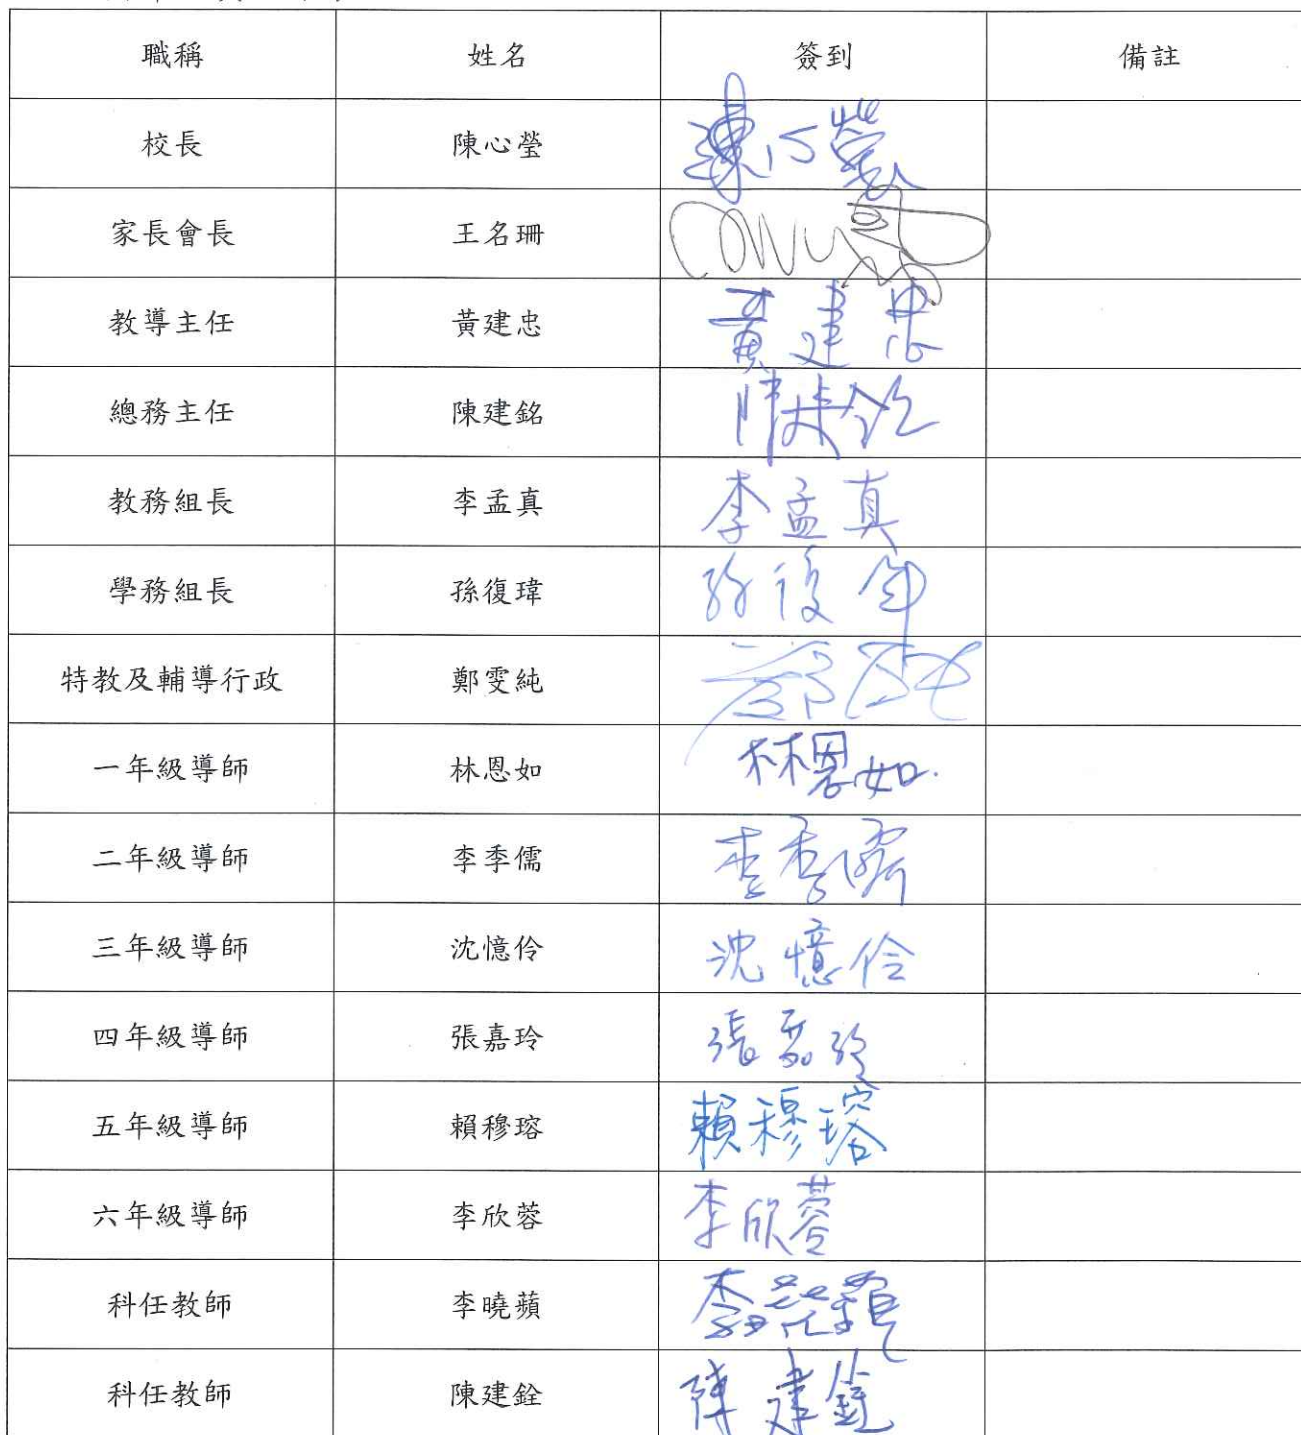 職稱 姓名 簽到 備註
校長 陳心瑩 陳心瑩
家長會長 王名珊
教導主任 黃建忠 黃建忠
總務主任 陳建銘 陳建銘
教務組長 李孟真 李孟真
學務組長 孫復瑋 孫復瑋
特教及輔導行政 鄭雯純 鄭
一年級導師 林恩如 林恩如
二年級導師 李季儒 李季儒
三年級導師 沈憶伶 沈憶伶
四年級導師 張嘉玲 張嘉玲
五年級導師 賴穆瑢 賴穆瑢
六年級導師 李欣蓉 李欣蓉
科任教師 李曉蘋
科任教師 陳建銓 陳建銓